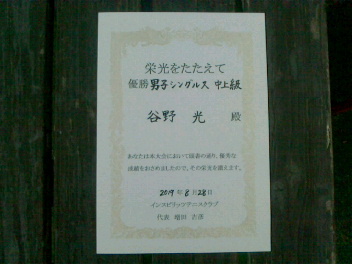 栄光をたたえて
優勝 男子シングルス 中上級
谷野 光 殿
あなたは本大会において頭書の通り、優秀な
成績をおさめましたので、その栄光を讃えます。
2019年8月28日
インスピリッツテニスクラブ
代表 増田 吉彦